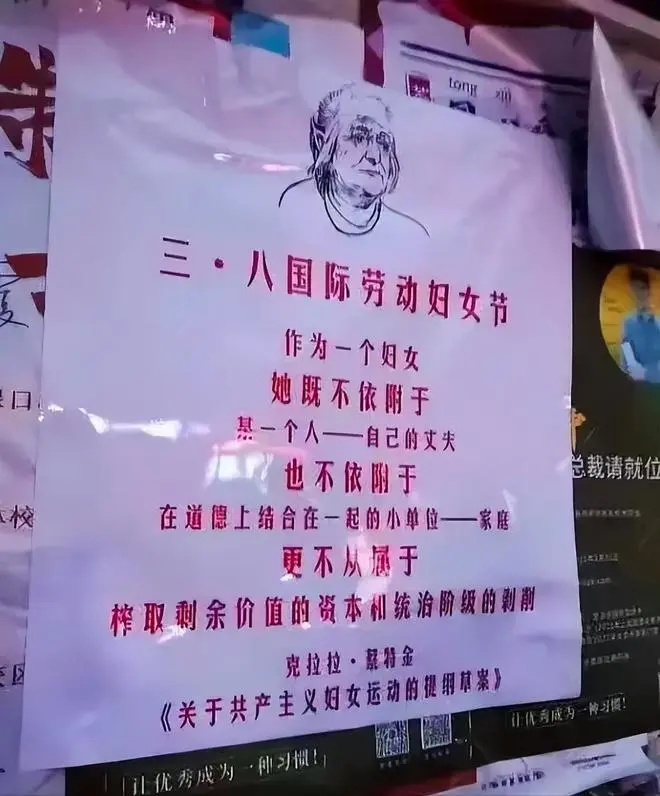 三·八国际劳动妇女节
作为一个妇女
她既不依附于
某一个人——自己的丈夫
也不依附于
在道德上结合在一起的小单位——家庭
更不从属于
榨取剩余价值的资本和统治阶级的剥削
克拉拉·蔡特金
《关于共产主义妇女运动的提纲草案》
总裁请就位
让优秀成为一种习惯！
让优秀成为一种习惯！